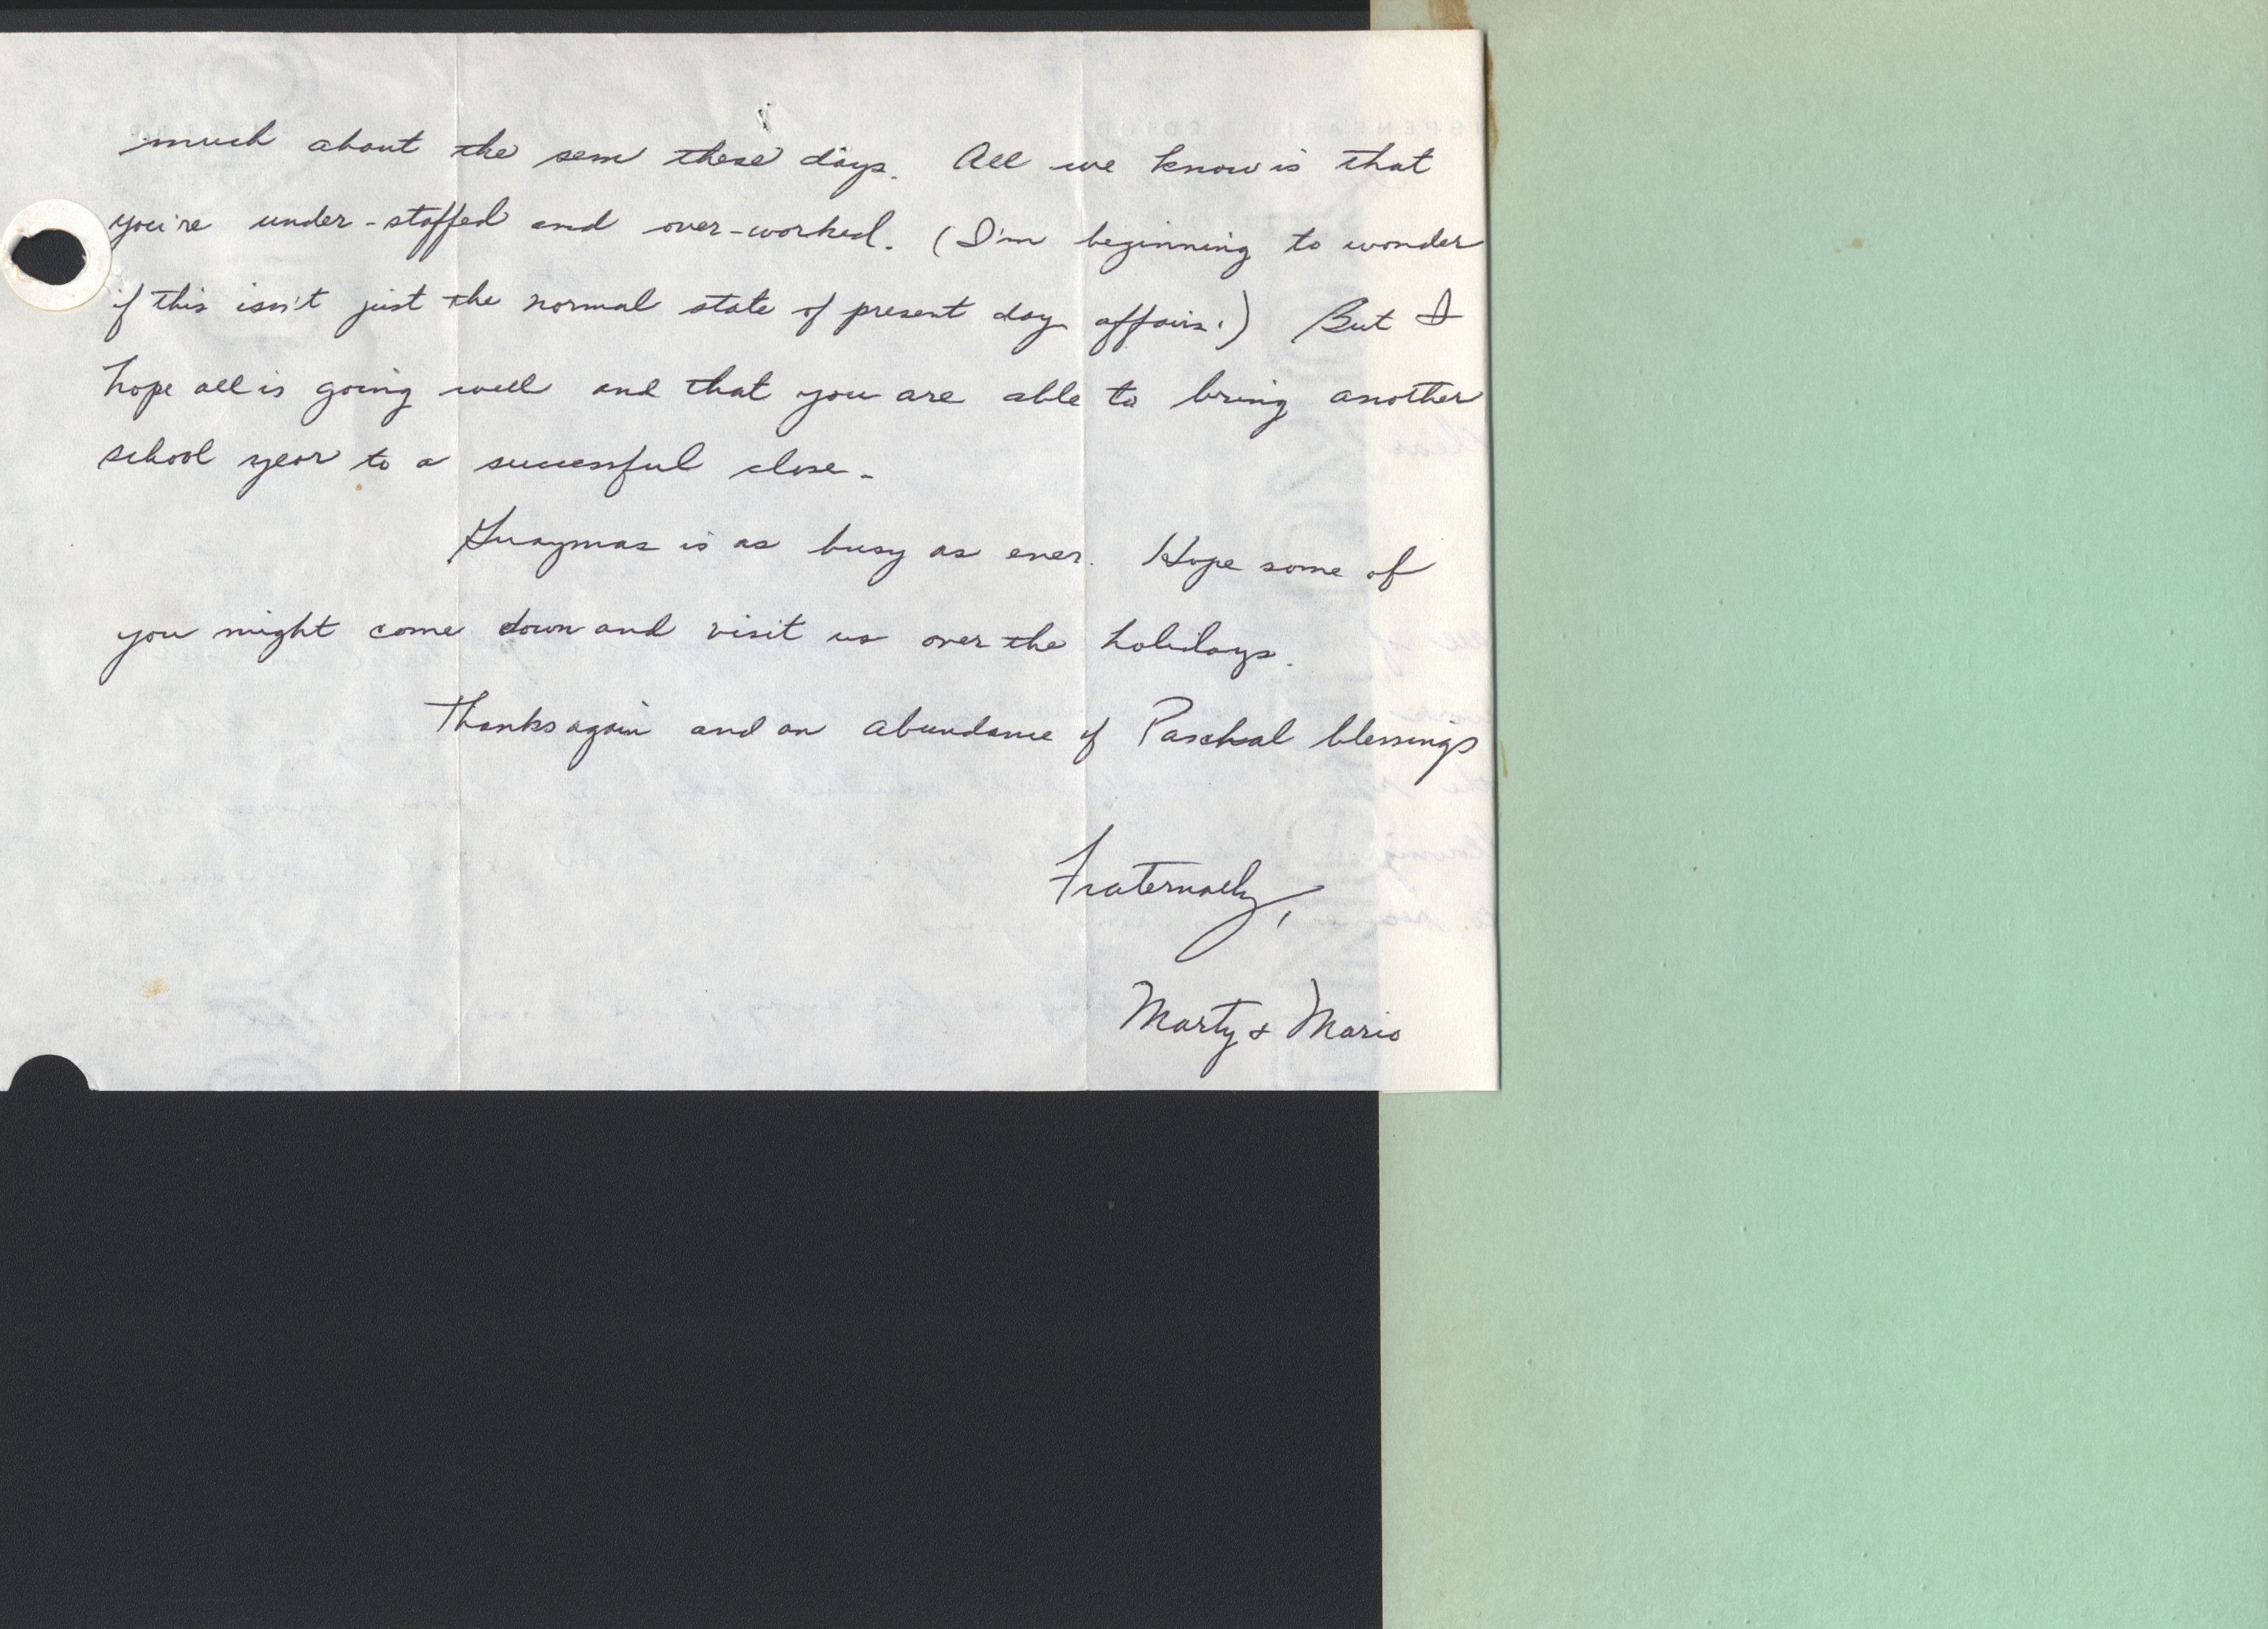 much about the sem these days. All we know is that
you're under-staffed and over-worked. (I'm beginning to wonder
if this isn't just the normal state of present day affairs.) But I
hope all is going well and that you are able to bring another
school year to a successful close.
Guaymas is as busy as ever. Hope some of
you might come down and visit us over the holidays.
Thanks again and an abundance of Paschal blessings
Fraternally,
Marty & Mario